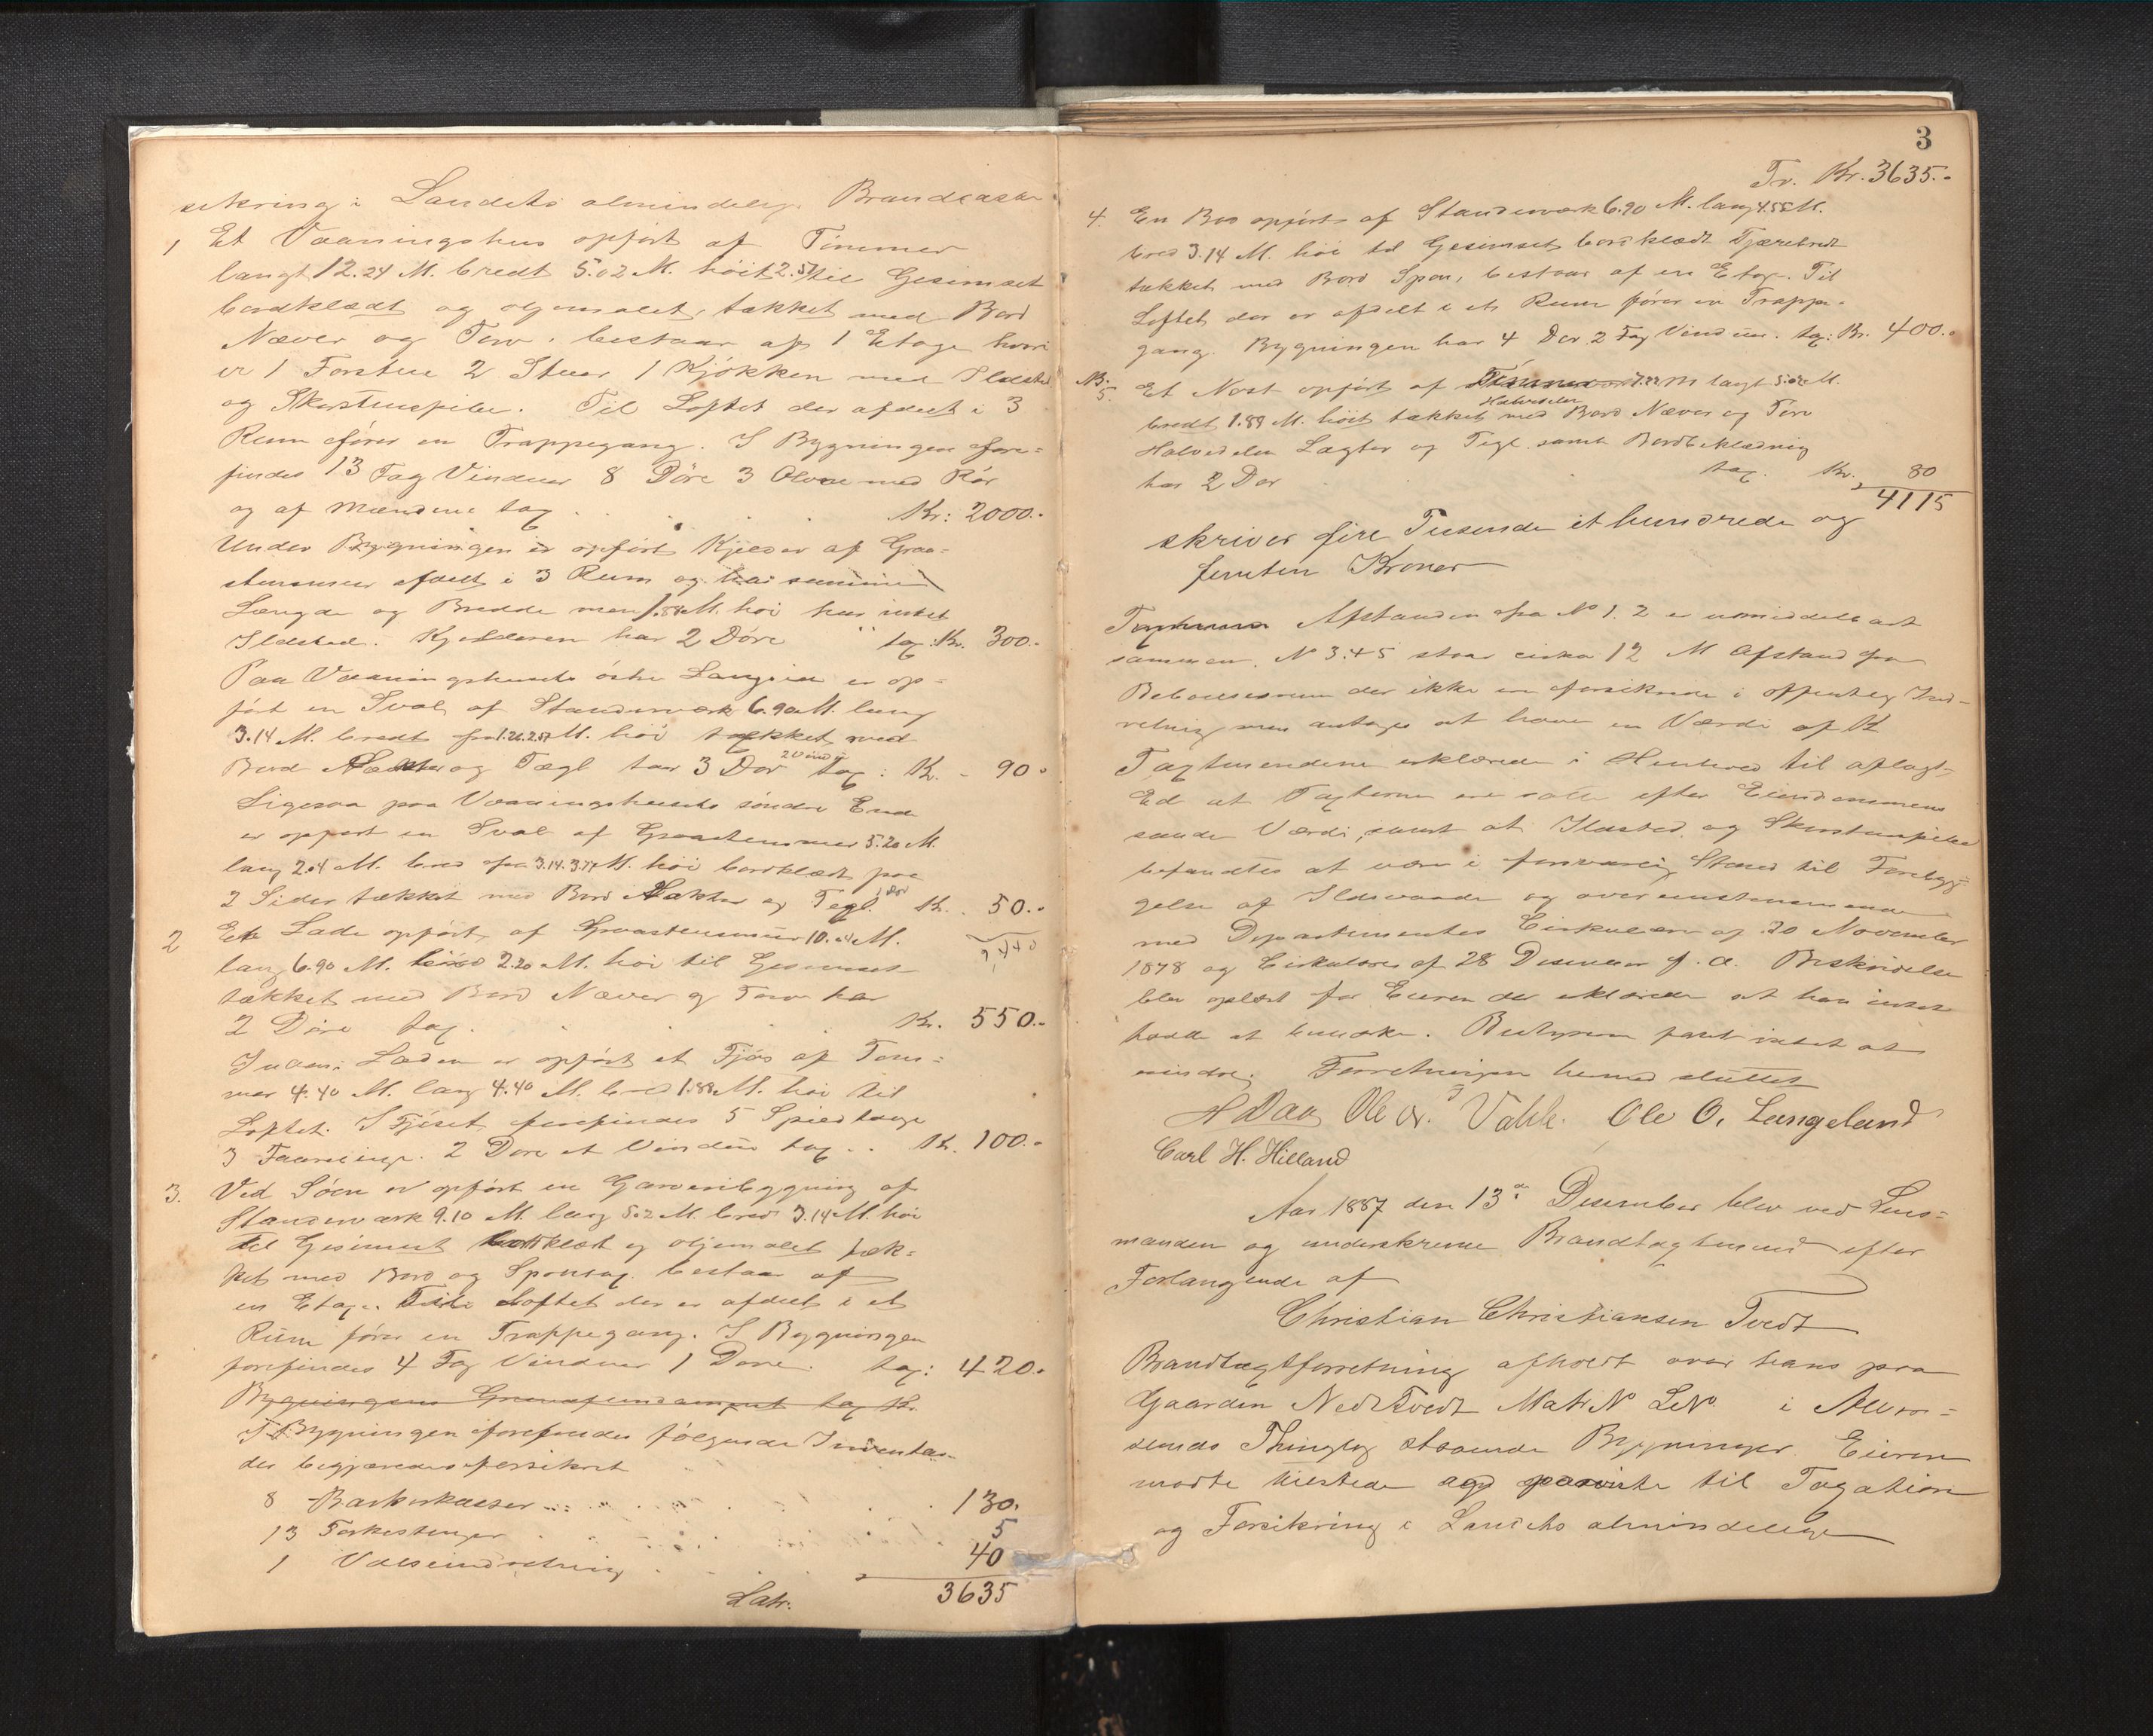 sikring i Landets almindelige Brandcasse
1 Et Vaaningshus opført af Tømmer
langt 12.24 M. bredt 5.02 M. høit 2.51 til Gesimset
bordklædt og oljemalet, takket med Bord
Næver og Torv, bestaar af 1 Etage hvori
er 1 Forstue 2 Stuer 1 Kjøkken med Ildsted
og Skorstenspibe. Til Loftet der afdelt i 3
Rum fører en Trappegang. I Bygningen fore=
findes 13 Fag Vinduer 8 Døre 3 Ovne med Rør
og af Mændene tax. Kr: 2000.-
Under Bygningen er opført Kjelder af Graa=
stensmur afdelt i 3 Rum og har samme
Længde og Bredde men 1.88 M. høi har intet
Ildsted. Kjelderen har 2 Døre tax: Kr. 300.-
Paa Vaaningshusets østre Langside er op=
ført en Sval af Standerværk 6.90 M. lang
3.14 M. bredt fra 1.26.2.51 M. høi takket med
Bord Lakter og Tægl har 3 Dør 2 Vindu tax: K. - 90.
Ligesaa paa Vaaningshusets søndre Ende
er opført en Sval af Graastensmur 5.20 M.
lang 2.04 M. bred fra 3.14.3.77 M. høi bordklædt paa
2 Sider takket med Bord Lakter og Tegl. 1 Dør Kr. 50.-
2,440
2 En Lade opført af Graastensmur 10.04 M.
lang 6.90 M. bred 2.20 M. høi til Gesimset
takket med Bord Næver og Torv har
2 Døre tax. Kr. 550.-
Inden i Laden er opført et Fjøs af Tøm=
mer 4.40 M. lang 4.40 M. bred 1.88 M. høi til
Loftet. I Fjøset forefindes 5
3 2 Døre et Vindue tax. Kr. 100.-
3. Ved Søen er opført en Garveribygning af
Standerværk 9.10 M. lang 5.2 M. bred 3.14 M. høi
til Gesimset bordklædt og oljemalet tæk=
ket med Bord og Spontag. bestaar af
en Etage. Til Loftet der er afdelt i et
Rum fører en Trappegang. I Bygningen
forefindes 4 Fag Vinduer 1 Døre. tax: 420.-
Bygningens Grundfundament tax Kr.
I Bygningen forefindes følgende Inventar
der begjæredes forsikret
8 Barkekasser 130.
13 5
1 Valseindretning 40
Latr. 3635
3
Tr. Kr. 3635.-
4. En Bod opført af Standerværk 6.90 M. lang 4.55 M.
bred 3.14 M. høi til Gesimset bordklædt Tjærebredt
takket med Bord Spon, bestaar af en Etage. Til
Loftet der er afdelt i et Rum fører en Trappe-
gang. Bygningen har 4 Dør 2 Fag Vinduer. tax: Kr. 400.-
NB. 5. Et Nøst opført af Tømmer M langt 5.02 M.
bredt 1.88 M. høit takket Halvdelen med Bord Næver og Torv
Halvdelen Lagter og Tegl samt Bordbeklædning
har 2 Dør tax. Kr. 80
4115
skriver fire Tusende et hundrede og
femten Kroner
Afstanden fra No 1. 2 er umiddelbart
sammen. No 3.4 5 staar cirka 12 M Afstand fra
Beboelsesrum der ikke er forsikrede i offentlig Ind-
retning men antages at have en Værdi af K
Taxtmændene erklærede i Henhold til aflagt
Ed at Taxterne ere satte efter Eiendommens
sande Værdi, samt at Ildsted og Skorstenspiber
befandtes at være i forsvarlig Stand til Forebyg-
gelse af Ildsvaade og overensstemmende
med Departementets Cirkulære af 30 November
1878 og Cirkulære af 28 Desember f. a. Beskrivelse
blev oplæst for Eieren der erklærede at han intet
havde at bemærke. Bestyreren fandt intet at
erindre. Forretningen hermed sluttet
H Daae Ole Vabl. Ole O. Langeland
Carl H. Hilland
Aar 1887 den 13de Desember blev ved Lens=
manden og underskrevne Brandtagtmænd efter
Forlangende af
Christian Christiansen Tvedt
Brandtagtforretning afholdt over hans paa
Gaarden Ned Tvedt Matr No LNo i Alver=
sunds Thinglag staaende Bygninger. Eieren
mødte tilstede og paaviste til Taxation
og Forsikring i Landets almindelige